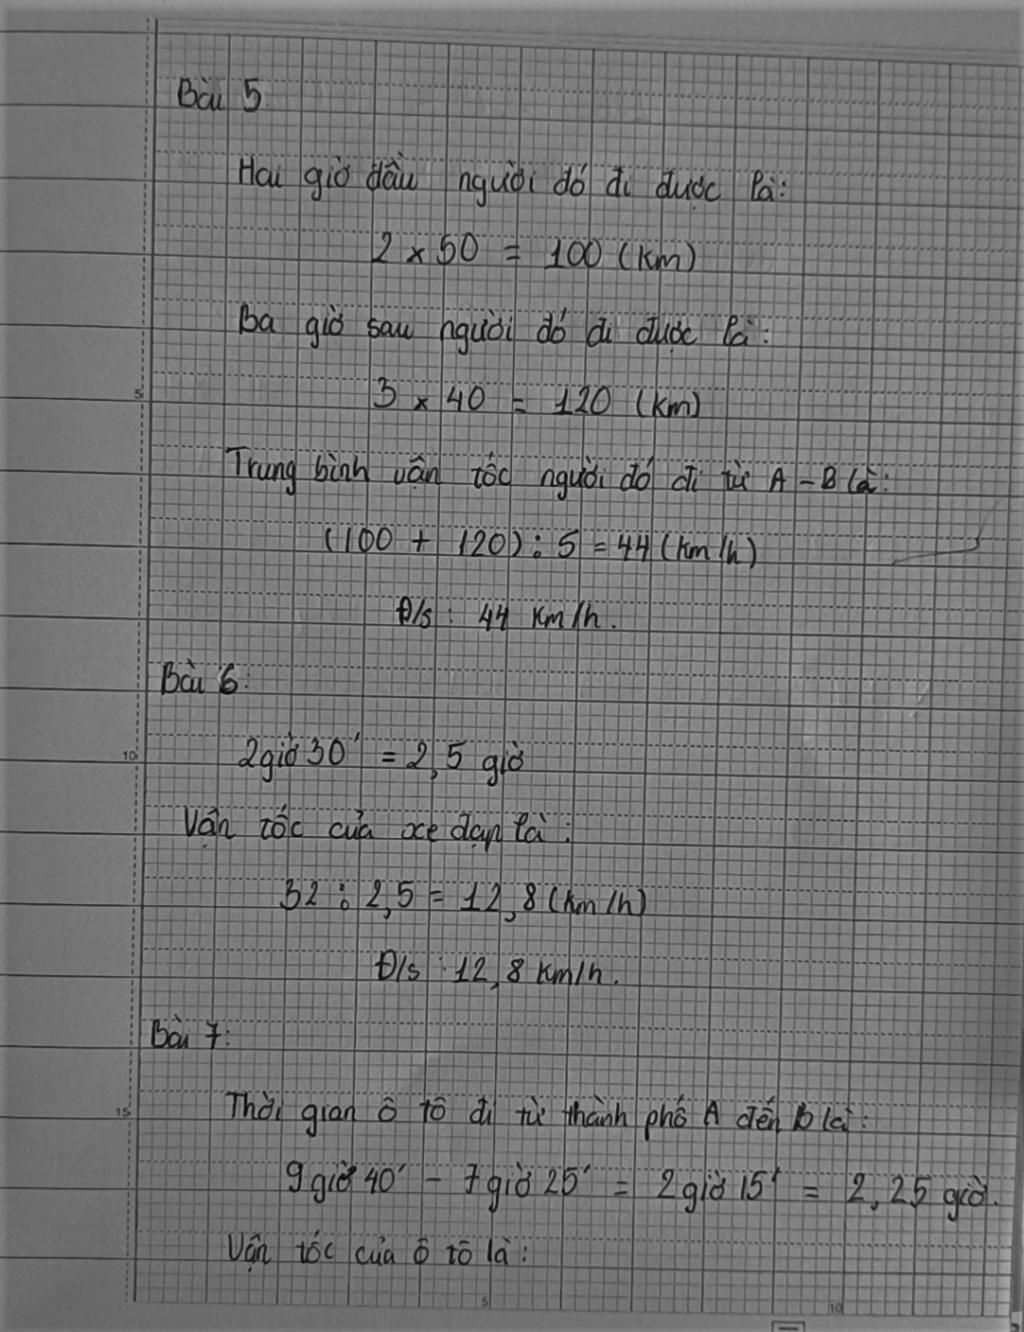 Bài 5
Hai giờ đầu người đó đi được là:
2 × 50 = 100 (km)
Ba giờ sau người đó đi được là:
5
3 × 40 = 120 (km)
Trung bình vận tốc người đó đi từ A - B là:
(100 + 120) : 5 = 44 (km/h)
Đ/s : 44 km/h.
Bài 6:
10
2 giờ 30' = 2,5 giờ
Vận tốc của xe đạp là :
32 : 2,5 = 12,8 (km/h)
Đ/s : 12,8 km/h.
Bài 7:
15
Thời gian ô tô đi từ thành phố A đến B là :
9 giờ 40' - 7 giờ 25' = 2 giờ 15' = 2,25 giờ.
Vận tốc của ô tô là :
5 10